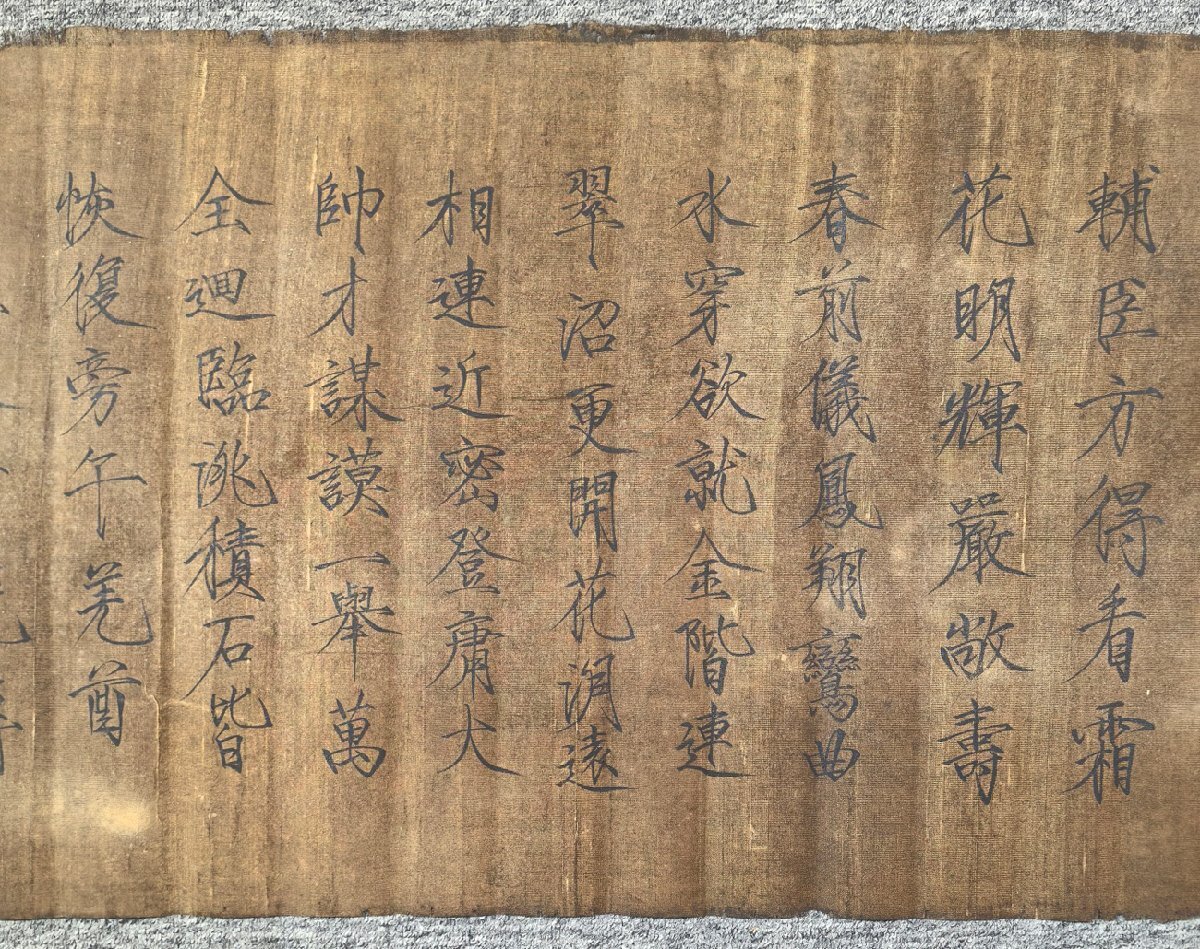 輔臣方得看霜
花明輝嚴敞壽
春前儀鳳翔鸞曲
水穿欲就金階連
翠沼更開花澗遠
相連近密登庸大
帥才謀謨一舉萬
全迴臨洮積石皆
恢復旁午羌酋